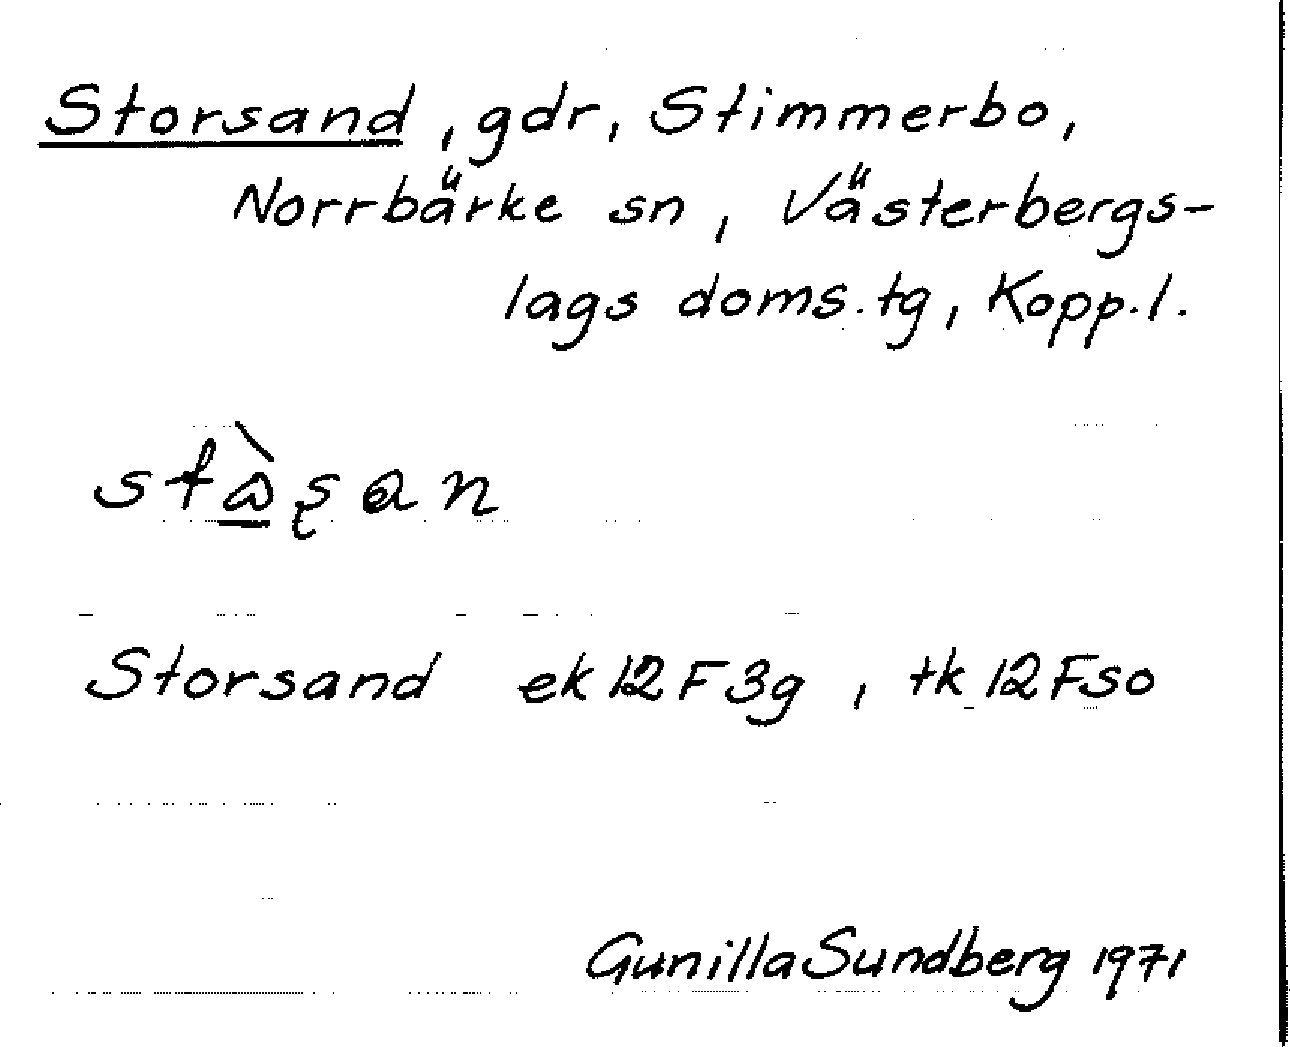 Storsand, gdr, Stimmerbo,
Norrbärke sn, Västerbergs-
lags doms.tg, Kopp.l.
Storsand ek 12F3g, tk 12Fso
Gunilla Sundberg 1971